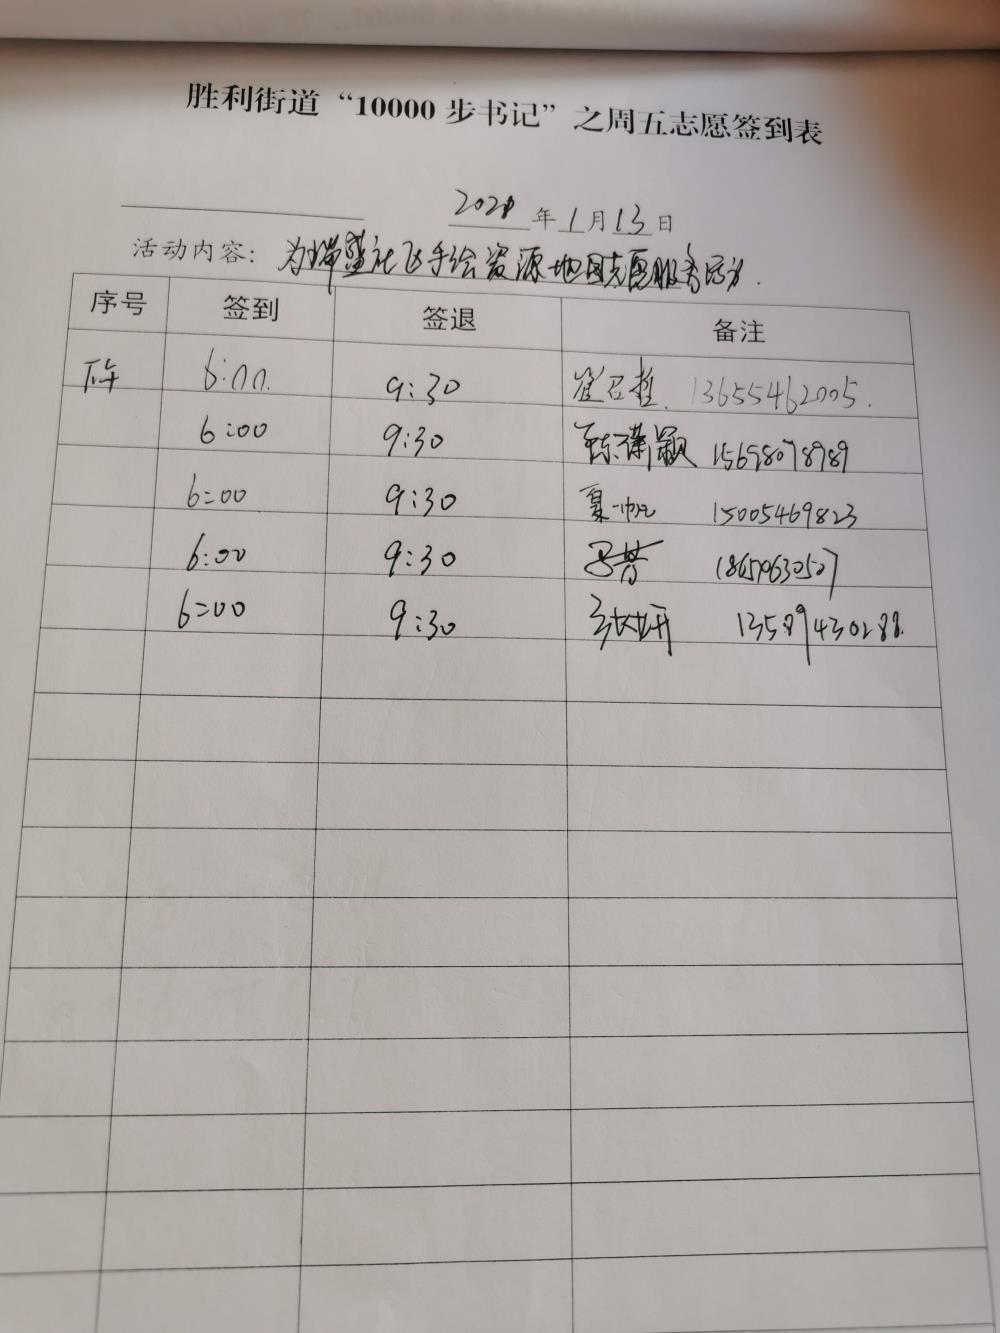 胜利街道“10000步书记”之周五志愿签到表
2021年1月13日
活动内容：为瑞盛社区手绘资源地图志愿服务活动.
序号 签到 签退 备注
下午 6:00 9:30 崔召哲 13655462005.
6:00 9:30 陈潇颖 15698078989
6:00 9:30 夏一帆 15005469823
6:00 9:30 18650630507
6:00 9:30 张妍 13589430288.